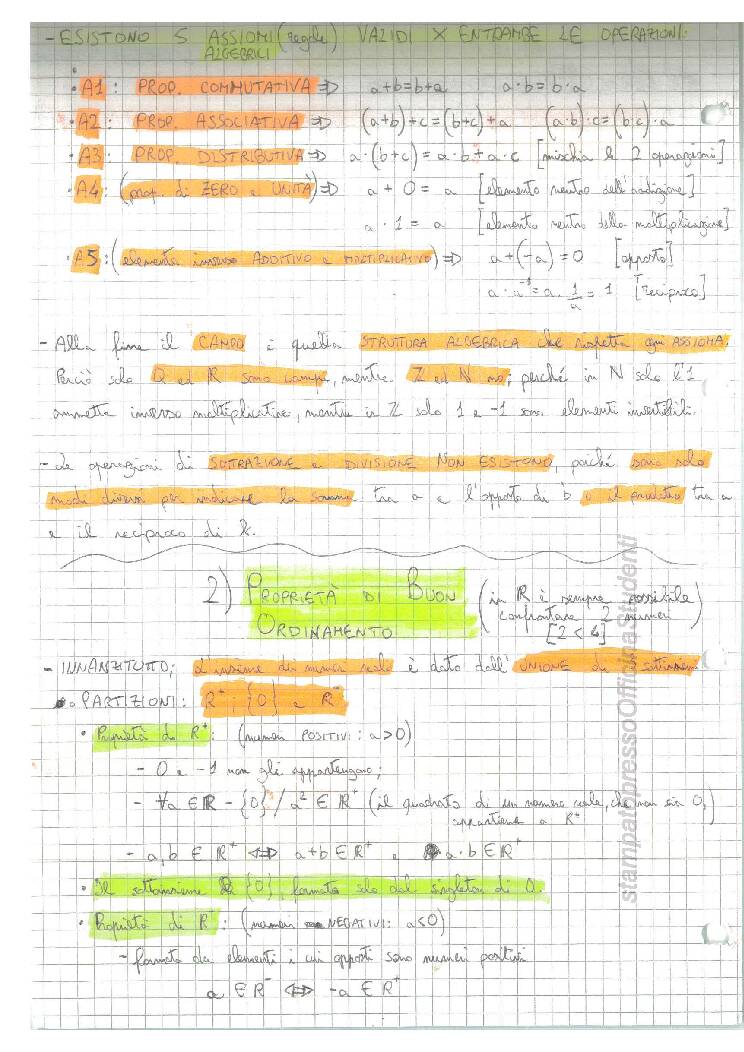 - ESISTONO 5 ASSIOMI (regole) VALIDI × ENTRAMBE LE OPERAZIONI:
ALGEBRICI
• A1: PROP. COMMUTATIVA ⇒ a+b=b+a a·b=b·a
• A2: PROP. ASSOCIATIVA ⇒ (a+b)+c=(b+c)+a (a·b)·c=(b·c)·a
• A3: PROP. DISTRIBUTIVA ⇒ a·(b+c)=a·b+a·c [mischia le 2 operazioni]
• A4: (prop. di ZERO e UNITÀ) ⇒ a+0=a [elemento neutro dell'addizione]
a·1=a [elemento neutro della moltiplicazione]
• A5: (elemento inverso ADDITIVO e MOLTIPLICATIVO) ⇒ a+(-a)=0 [opposto]
a·a⁻¹=a·1/a=1 [reciproco]
- Alla fine il CAMPO è quella STRUTTURA ALGEBRICA che rispetta ogni ASSIOMA.
Perciò solo Q ed R sono campi, mentre Z ed N no; perché in N solo l'1
ammette inverso moltiplicativo, mentre in Z solo 1 e -1 sono elementi invertibili.
- Le operazioni di SOTTRAZIONE e DIVISIONE NON ESISTONO, poiché sono solo
modi diversi per indicare la somma tra a e l'opposto di b o il prodotto tra a
e il reciproco di b.
2) PROPRIETÀ DI BUON (in R è sempre possibile
ORDINAMENTO confrontare 2 numeri)
[2<4]
- INNANZITUTTO; L'insieme dei numeri reali è dato dall'UNIONE di 3 sottoinsiemi
o PARTIZIONI: R⁺; {0} e R⁻
• Proprietà di R⁺: (numeri POSITIVI: a>0)
- 0 e -1 non gli appartengono;
- ∀a ∈ R - {0} / a² ∈ R⁺ (il quadrato di un numero reale, che non sia 0,
appartiene a R⁺)
- a, b ∈ R⁺ ⇔ a+b ∈ R⁺ e a·b ∈ R⁺
• Il sottoinsieme {0}, formato solo dal singleton di 0.
• Proprietà di R⁻: (numeri NEGATIVI: a<0)
- formato da elementi i cui opposti sono numeri positivi
a ∈ R⁻ ⇔ -a ∈ R⁺
stampatopressoOfficinaStudenti